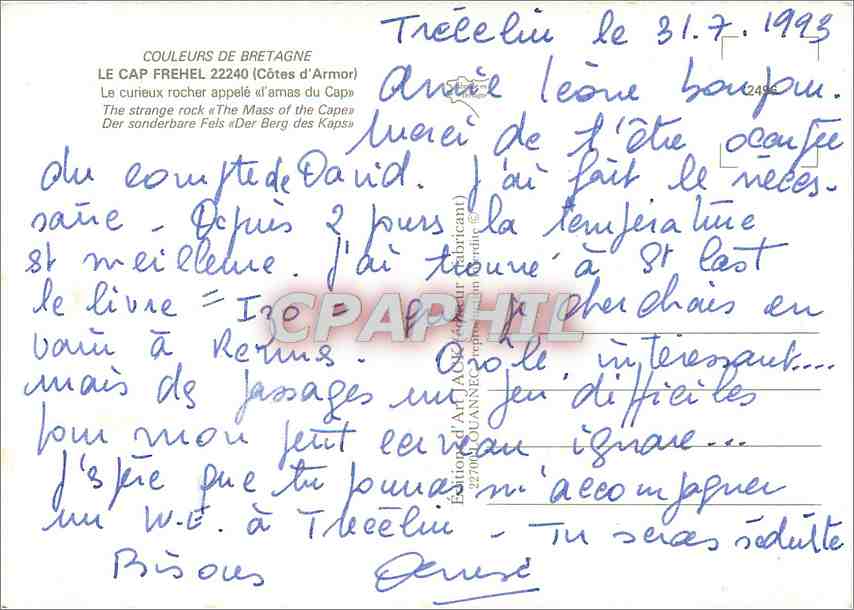 Trécélin le 31.7.1993
COULEURS DE BRETAGNE
LE CAP FREHEL 22240 (Côtes d'Armor)
Le curieux rocher appelé «l'amas du Cap»
The strange rock «The Mass of the Cape»
Der sonderbare Fels «Der Berg des Kaps»
Amie Léone bonjour.
2496
Merci de t'être occupée
du compte de David. J'ai fait le néces-
saire - Depuis 2 jours la température
est meilleure. J'ai trouvé à St Cast
le livre = Izo = que je cherchais en
vain à Reims. Drôle, intéressant....
mais des passages un peu difficiles
pour mon petit cerveau ignare...
J'espère que tu pourras m'accompagner
un W.E. à Trécélin - Tu seras séduite
Bisous Denise
Editions d'Art JACK (éditeur fabricant)
22700 LOUANNEC reproduction interdite ©
CPAPHIL